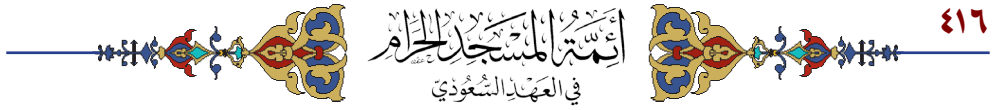 ٤١٦
أَئِمَّةُ المَسْجِدِ الحَرَامِ
فِي العَهْدِ السُّعُودِيِّ